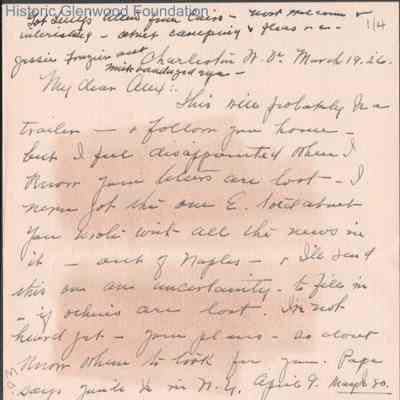 Historic Glenwood Foundation
Got letters from Cairo - most welcome &
1/4
interesting - street camping & fleas
Jessie Frazier
with bandaged eye -
Charleston W. Va. March 19. 26.
My dear Alex:
This will probably be a
trailer - & follow you home -
but I feel disappointed when I
know your letters are lost - I
never got the one E. said
you wrote with all the news in
it - out of Naples - & I'll send
this one on uncertainty - to fill in
- if others are lost. I've not
heard yet - your plans - so don't
know when to look for you. Papa
says you'll be in N.Y. April 9.